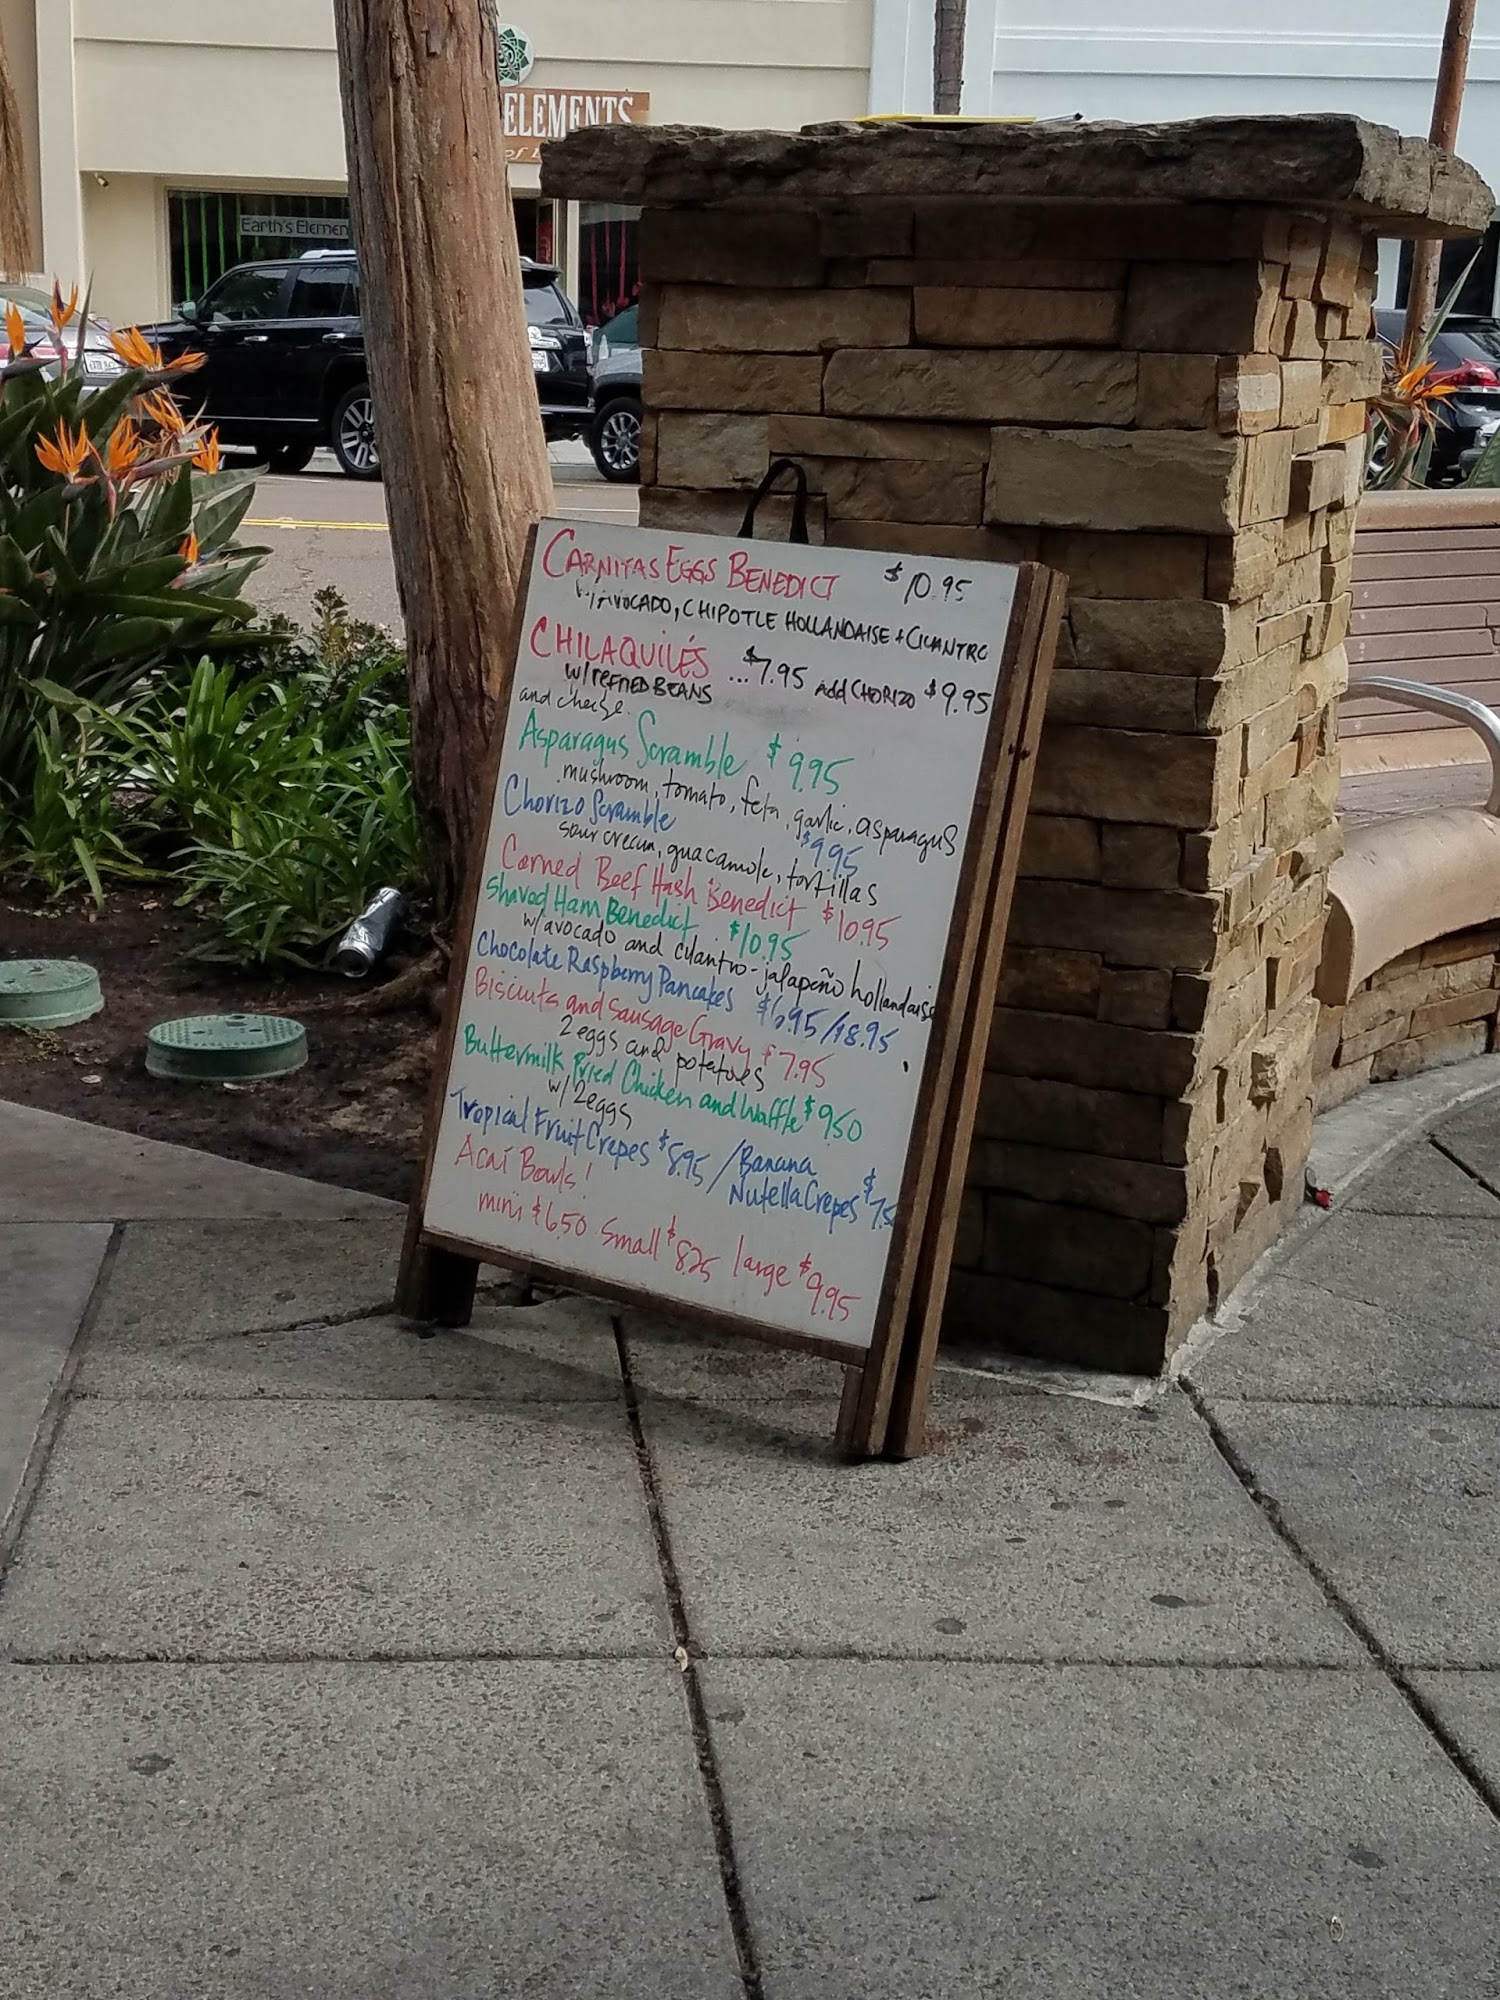 ELEMENTS
of
Earth's Elemen
CARNITAS EGGS BENEDICT $10.95
w/AVOCADO, CHIPOTLE HOLLANDAISE + CILANTRO
CHILAQUILÉS ...$7.95 Add CHORIZO $9.95
w/refried BEANS
and cheese.
Asparagus Scramble $9.95
mushroom, tomato, feta, garlic, asparagus
Chorizo Scramble $9.95
sour cream, guacamole, tortillas
Corned Beef Hash Benedict $10.95
Shaved Ham Benedict $10.95
w/avocado and cilantro-jalapeño hollandaise
Chocolate Raspberry Pancakes $6.95/$8.95
Biscuits and Sausage Gravy $7.95
2 eggs and potatoes
Buttermilk Fried Chicken and Waffle $9.50
w/ 2 eggs
Tropical Fruit Crepes $8.95 / Banana
Nutella Crepes $7.5
Acaí Bowls!
mini $6.50 Small $8.25 large $9.95